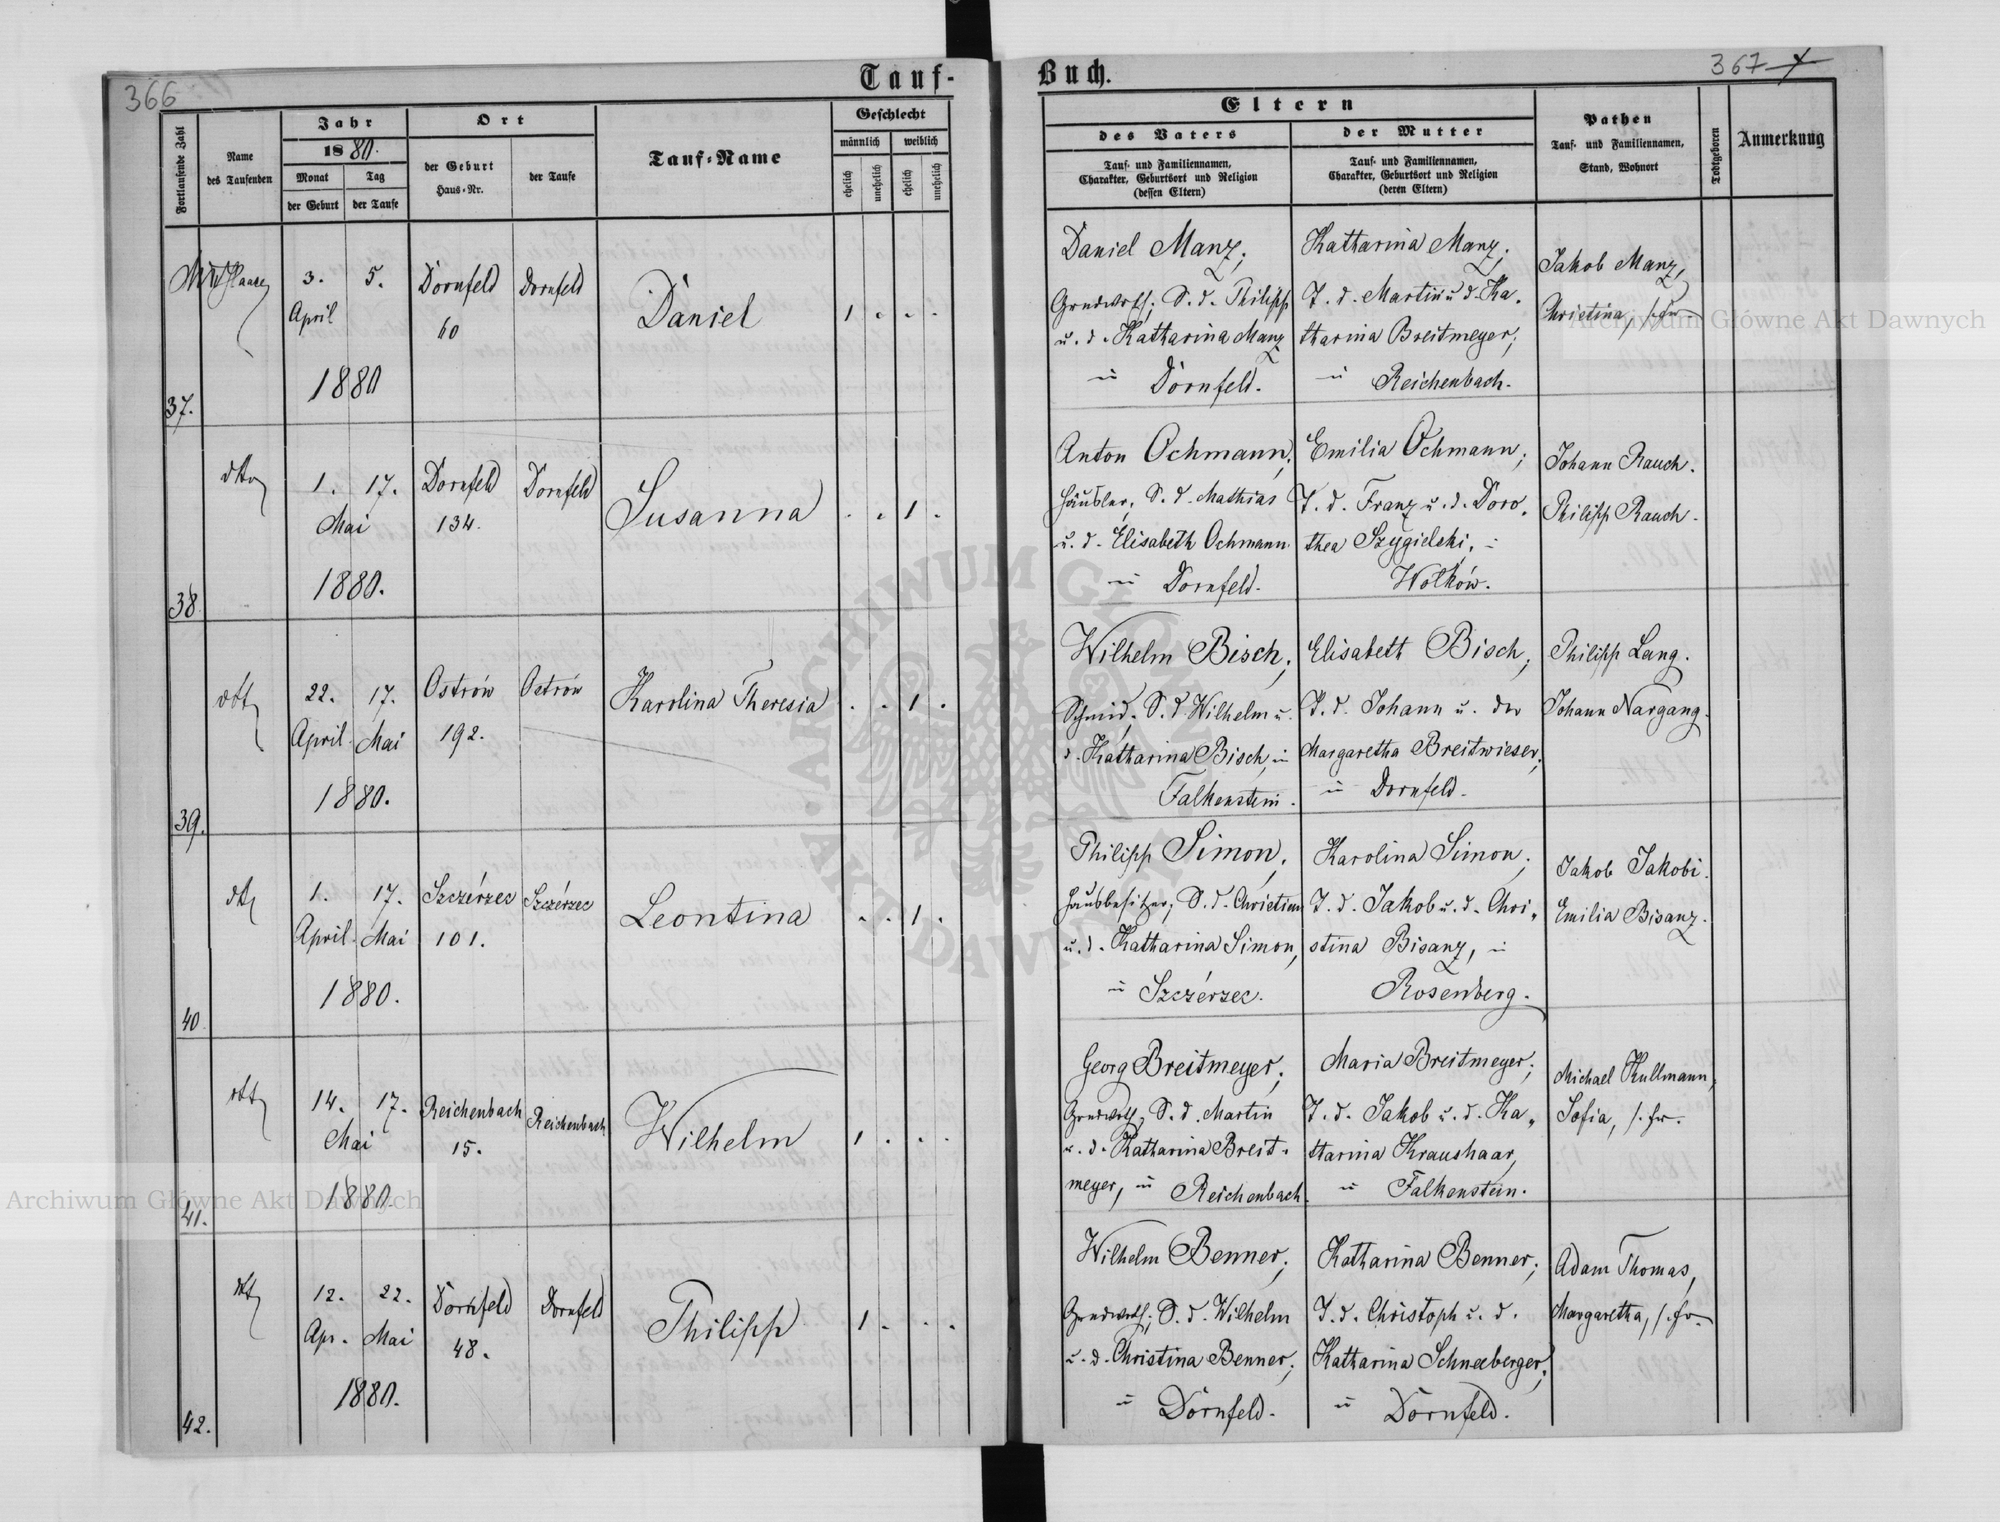 366
Tauf-
Fortlaufende Zahl
Name
des Taufenden
Jahr
1880.
Monat
Tag
der Geburt
der Taufe
Ort
der Geburt
Haus-Nr.
der Taufe
Tauf-Name
Geschlecht
männlich
weiblich
ehelich
unehelich
ehelich
unehelich
37.
3.
5.
April
1880
Dornfeld
60
Dornfeld
Daniel
1 . . .
38
dtto
1.
17.
Mai
1880.
Dornfeld
134.
Dornfeld
Susanna
. . 1 .
39.
dtto
22.
17.
April
Mai
1880.
Ostrów
192.
Ostrów
Karolina Theresia
. . 1 .
40
dtto
1.
17.
April
Mai
1880.
Szczérzec
101.
Szczérzec
Leontina
. . 1 .
41.
dtto
14.
17.
Mai
1880.
Reichenbach
15.
Reichenbach
Wilhelm
1 . . .
42.
dtto
12.
22.
Apr.
Mai
1880.
Dornfeld
48.
Dornfeld
Philipp
1 . . .
Buch.
367
Eltern
des Vaters
Tauf- und Familiennamen,
Charakter, Geburtsort und Religion
(dessen Eltern)
der Mutter
Tauf- und Familiennamen,
Charakter, Geburtsort und Religion
(deren Eltern)
Pathen
Tauf- und Familiennamen,
Stand, Wohnort
Todtgeboren
Anmerkung
Daniel Manz;
Grndwrth; S. d. Philipp
u. d. Katharina Manz
in Dornfeld.
Katharina Manz;
T. d. Martin u d. Ka-
tharina Breitmeyer;
in Reichenbach.
Jakob Manz,
Christina, s. Fr.
Anton Ochmann;
Häusler; S. d. Mathias
u. d. Elisabeth Ochmann
in Dornfeld.
Emilia Ochmann;
T. d. Franz u. d. Doro-
thea Szygielski, in
Wolków.
Johann Rauch.
Philipp Rauch.
Wilhelm Bisch;
Schmid; S. d Wilhelm u.
d. Katharina Bisch, in
Falkenstein.
Elisabeth Bisch;
T. d. Johann u. der
Margaretha Breitwieser;
in Dornfeld.
Philipp Lang.
Johann Nargang.
Philipp Simon;
Hausbesitzer; S. d. Christian
u. d. Katharina Simon,
in Szczérzec.
Karolina Simon;
T. d. Jakob u. d. Chri-
stina Bisanz, in
Rosenberg.
Jakob Jakobi.
Emilia Bisanz.
Georg Breitmeyer;
Grndwrth; S. d. Martin
u. d. Katharina Breit-
meyer, in Reichenbach.
Maria Breitmeyer;
T. d. Jakob u. d. Ka-
tharina Kraushaar,
in Falkenstein.
Michael Kullmann,
Sofia, s. Fr.
Wilhelm Benner;
Grndwrth; S. d. Wilhelm
u. d. Christina Benner;
in Dornfeld.
Katharina Benner;
T. d. Christoph u. d.
Katharina Schneeberger;
in Dornfeld.
Adam Thomas,
Margaretha, s. Fr.
Archiwum Główne Akt Dawnych
Archiwum Główne Akt Dawnych
ARCHIWUM GŁÓWNE AKT DAWNYCH